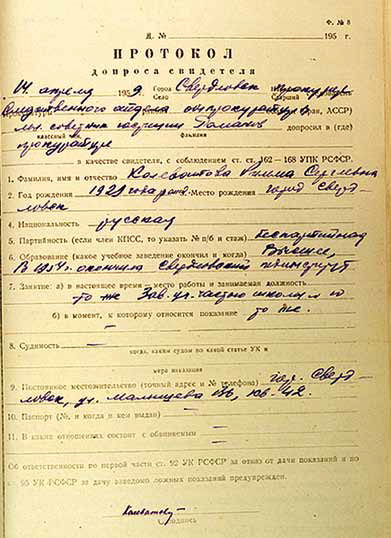 Ф. № 8
Д. № 195 г.
ПРОТОКОЛ
допроса свидетеля
14 апреля 1959 Город Свердловск прокурор
Село Старший
следственного отдела облпрокуратуры
(края, АССР)
мл. советник юстиции Романов допросил в (где)
классный чин фамилия
прокуратуре
в качестве свидетеля, с соблюдением ст. ст. 162—168 УПК РСФСР.
1. Фамилия, имя и отчество Колеватова Римма Сергеевна
2. Год рождения 1929 года рожд. Место рождения город Сверд-
ловск
4. Национальность русская
5. Партийность (если член КПСС, то указать № п/б и стаж) беспартийная
6. Образование (какое учебное заведение окончил и когда) Высшее,
В 1954 г. окончила Свердловский пединститут
7. Занятие: а) в настоящее время — место работы и занимаемая должность
то же Зав. уч. частью школы
б) в момент, к которому относится показание то же.
8. Судимость —
когда, каким судом по какой статье УК и
мера наказания
9. Постоянное местожительство (точный адрес и № телефона) гор. Сверд-
ловск, ул. Малышева кв. 42.
10. Паспорт (№, и когда и кем выдан) —
11. В каких отношениях состоит с обвиняемым —
Об ответственности по первой части ст. 92 УК РСФСР за отказ от дачи показаний и по
ст. 95 УК РСФСР за дачу заведомо ложных показаний предупрежден.
Колеватова
Подпись